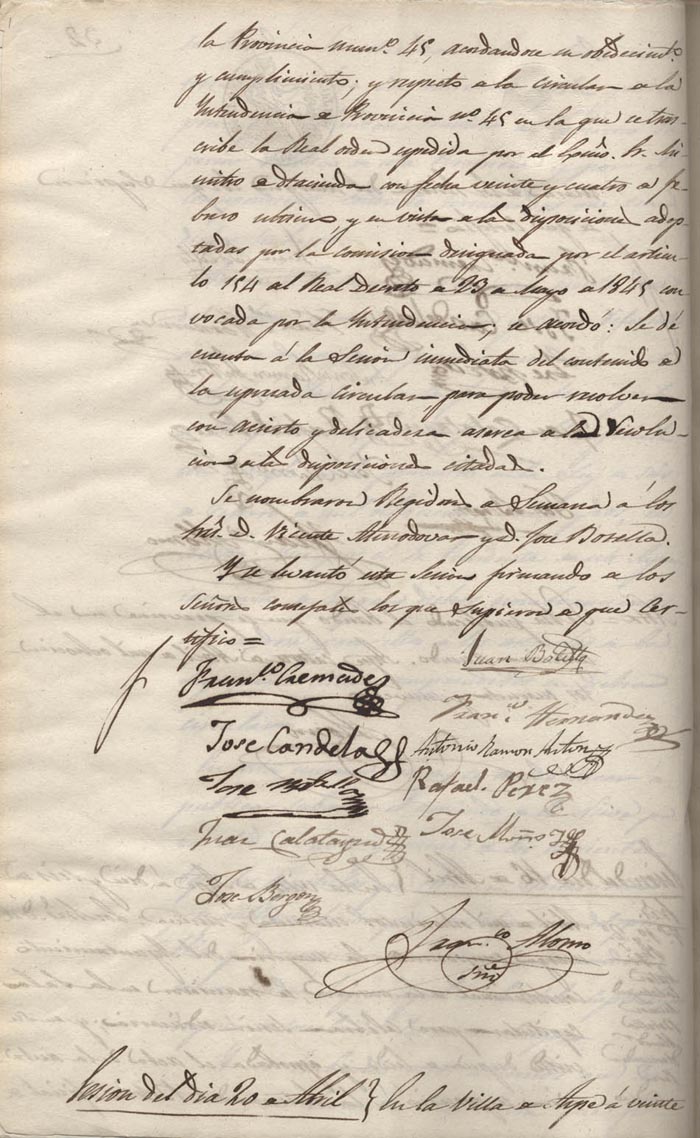 la Provincia num.º 45, acordandose su obedecim.to
y cumplimiento; y respecto a la circular a la
Intendencia e Provincia nº. 45 en la que se tras-
cribe la Real orden expedida por el Exmo. Sr. Mi-
nistro e Hacienda con fecha veinte y cuatro a fe-
brero ultimo, y en vista a la disposicione adop-
tadas por la comision designada por el articu-
lo 154 al Real Decreto a 23 a Mayo a 1845 con-
vocada por la Intendencia; se acordó: Se dé
cuenta á la Sesion inmediata del contenido a
la expresada circular para poder resolver
con acierto y delicadesa aserca a la
cion a la disposicione citadad.
Se nombraron Regidores a Semana á los
Sres. D. Vicente Almodovar y D. Jose Botella.
Y se levantó esta Sesion firmando a los
Señores concejales los que supieron a que Cer-
tifico=
Juan Botella
Fran.co Cremades
Fran.co Hernandez
Jose Candela
Antonio Ramon Anton
Jose
Rafael Perez
Juan Calatayud
Jose Muños
Jose Borgon
Fran.co Alonso
Srio
Sesion del dia 20 a Abril } En la Villa a Aspe á veinte